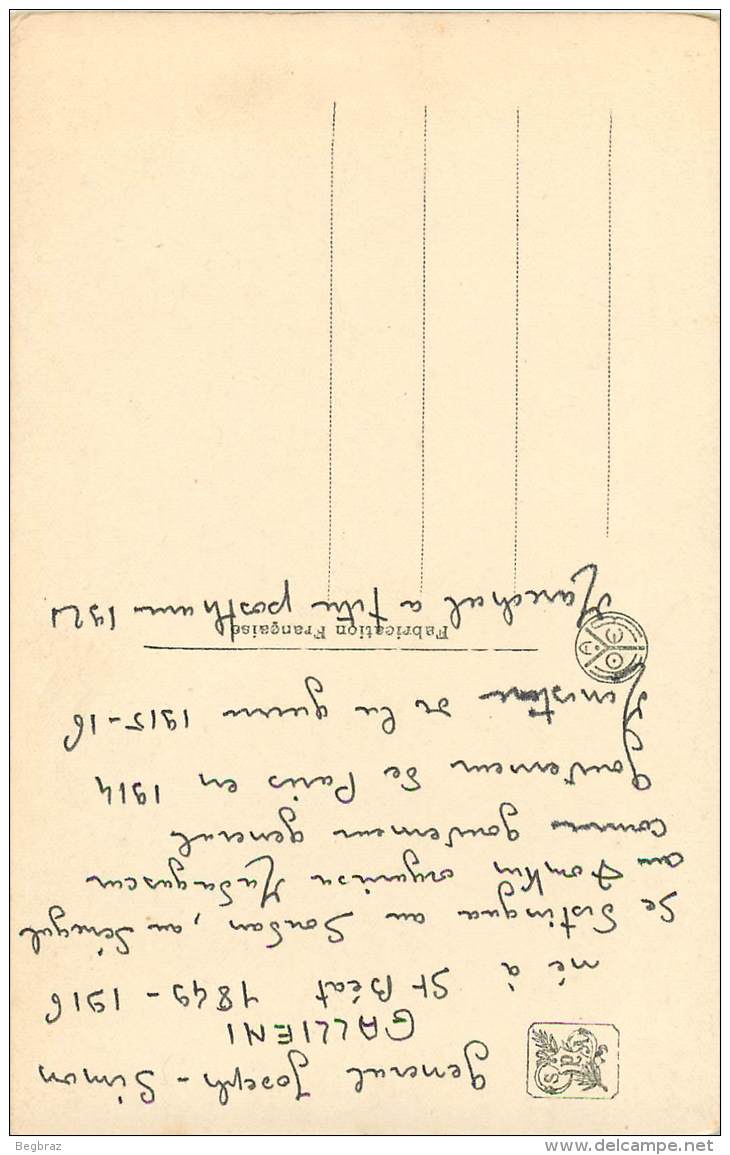 General Joseph-Simon
GALLIENI
né à St Béat 1849-1916
Se distingua au Soudan, au Sénégal
au Tonkin organisa Madagascar
comme gouverneur general
Gouverneur de Paris en 1914
Ministre de la guerre 1915-16
Fabrication Française
Marechal a titre posthume 1921
Begbraz
www.delcampe.net